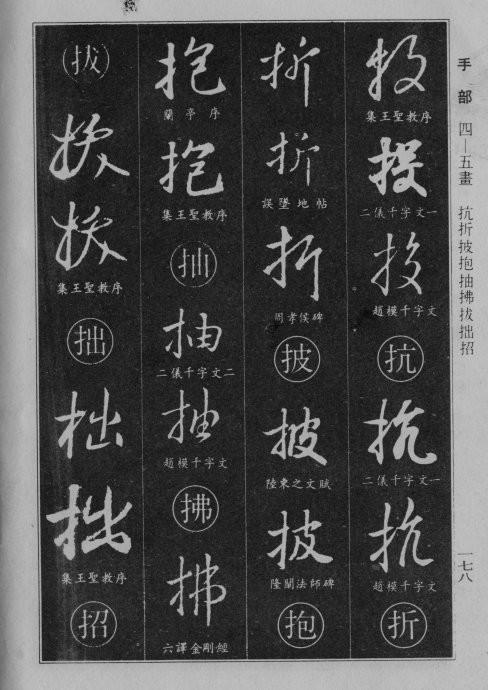 手部 四—五畫 抗折披抱抽拂拔拙招
一七八
投
集王聖教序
投
二儀千字文一
投
趙模千字文
抗
抗
二儀千字文一
抗
趙模千字文
折
折
折
誤墜地帖
折
周孝侯碑
披
披
陸柬之文賦
披
隆闡法師碑
抱
抱
蘭亭序
抱
集王聖教序
抽
抽
二儀千字文二
抽
趙模千字文
拂
拂
六譯金剛經
拔
拔
拔
集王聖教序
拙
拙
拙
集王聖教序
招